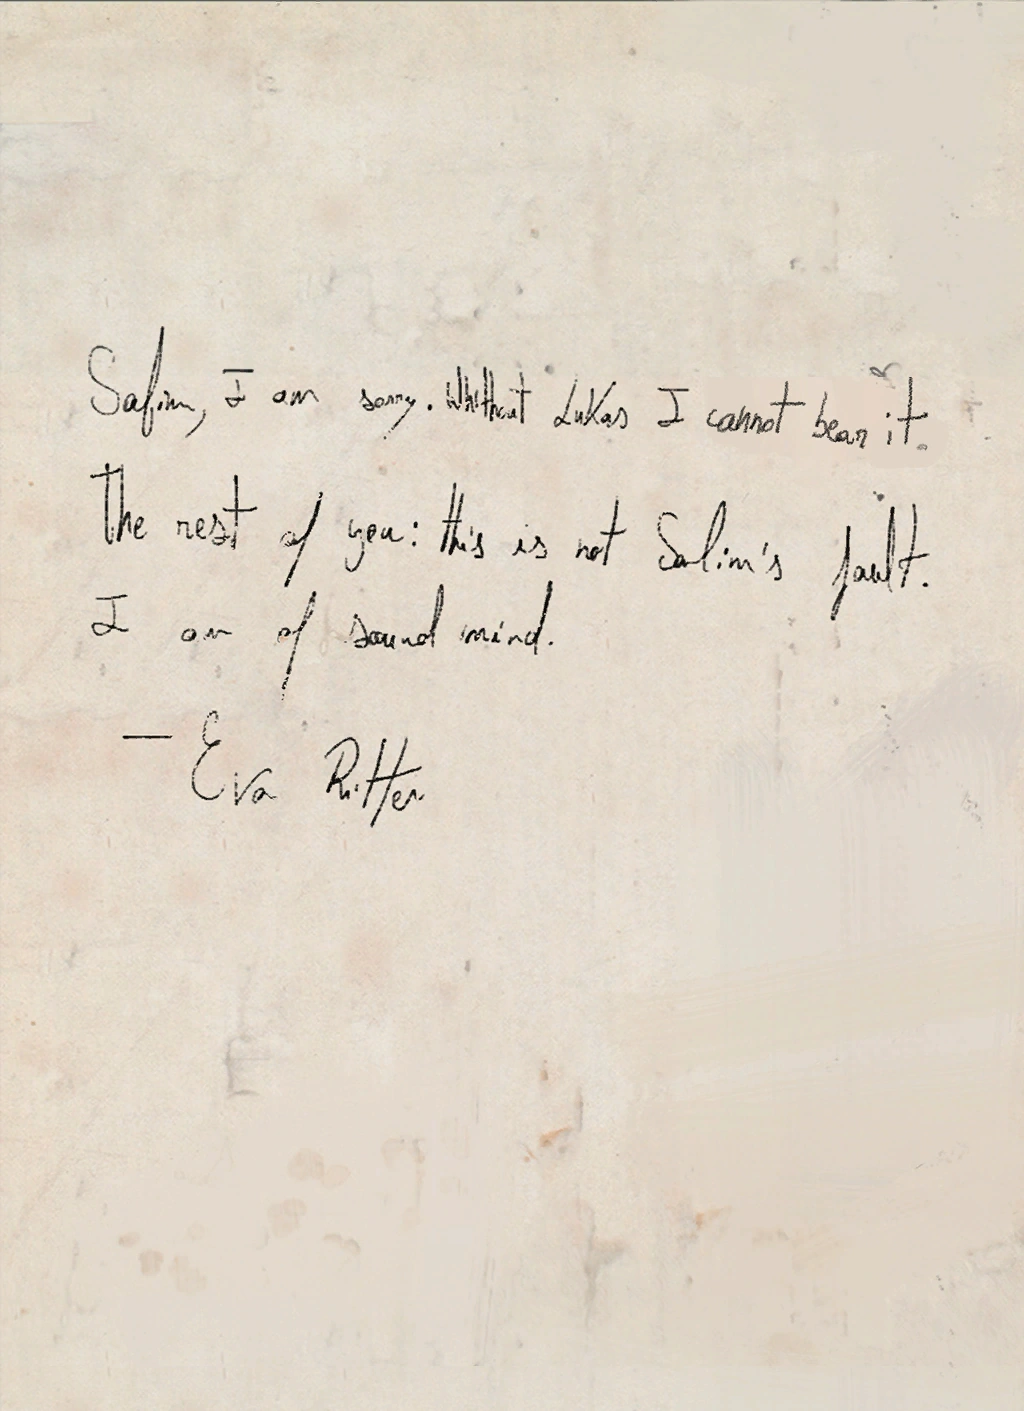 Salim, I am sorry. Whithout Lukas I cannot bear it.
The rest of you: this is not Salim's fault.
I am of sound mind.
— Eva Ritter